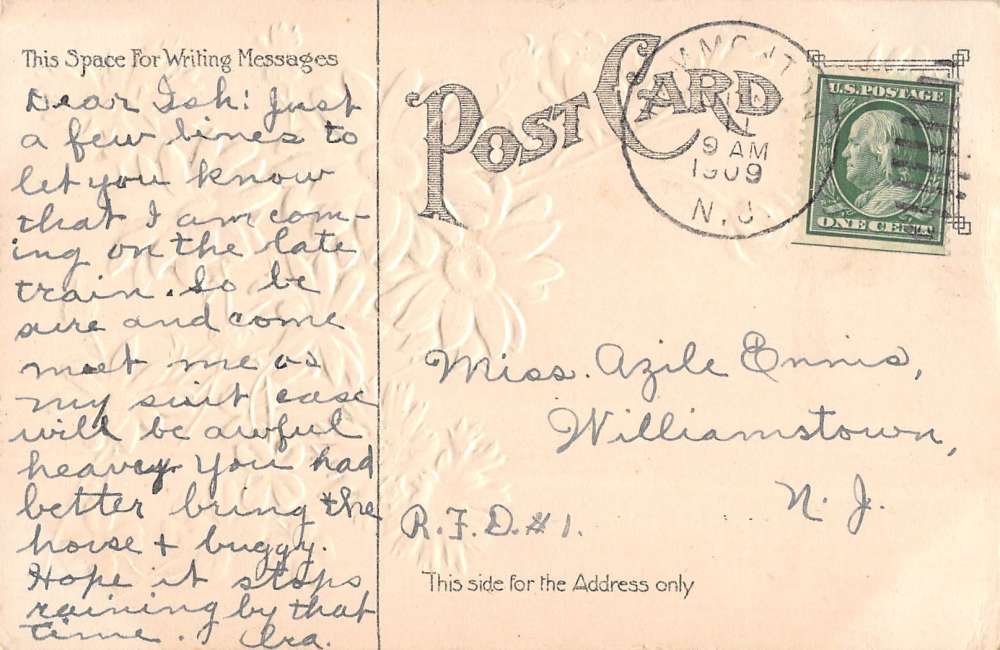 This Space For Writing Messages
Dear Ish! Just
a few lines to
let you know
that I am com-
ing on the late
train. So be
sure and come
meet me as
my suit case
will be awful
heavey. You had
better bring the
horse + buggy.
Hope it stops
raining by that
time. Ira.
POST CARD
9 AM
1909
N.J.
U.S. POSTAGE
ONE CENT
Miss. Azile Ennis,
Williamstown,
N. J.
R.F.D. #1.
This side for the Address only